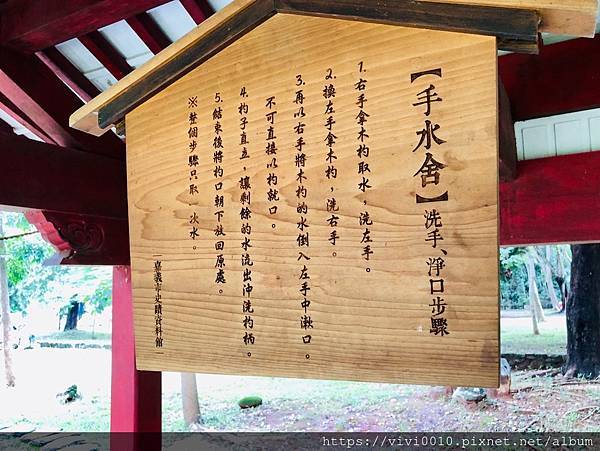 【手水舍】洗手、淨口步驟
1. 右手拿木杓取水，洗左手。
2. 換左手拿木杓，洗右手。
3. 再以右手將木杓的水倒入左手中漱口。
不可直接以杓就口。
4. 杓子直立，讓剩餘的水流出沖洗杓柄。
5. 結束後將杓口朝下放回原處。
※ 整個步驟只取一次水。
嘉義市史蹟資料館
https://vivi0010.pixnet.net/album